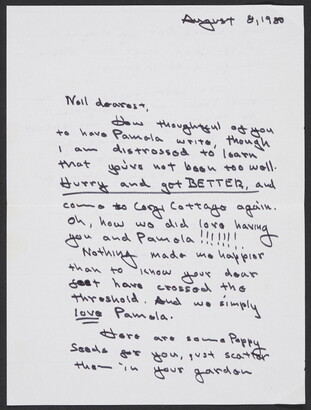 August 8, 1980
Nell dearest,
How thoughtful of you
to have Pamela write, though
I am distressed to learn
that you've not been too well.
Hurry and get BETTER, and
come to Corgi Cottage again.
Oh, how we did love having
you and Pamela!!!!!!!
Nothing made me happier
than to know your dear
feet have crossed the
threshold. And we simply
love Pamela.
Here are some Poppy
Seeds for you, just scatter
them in your garden